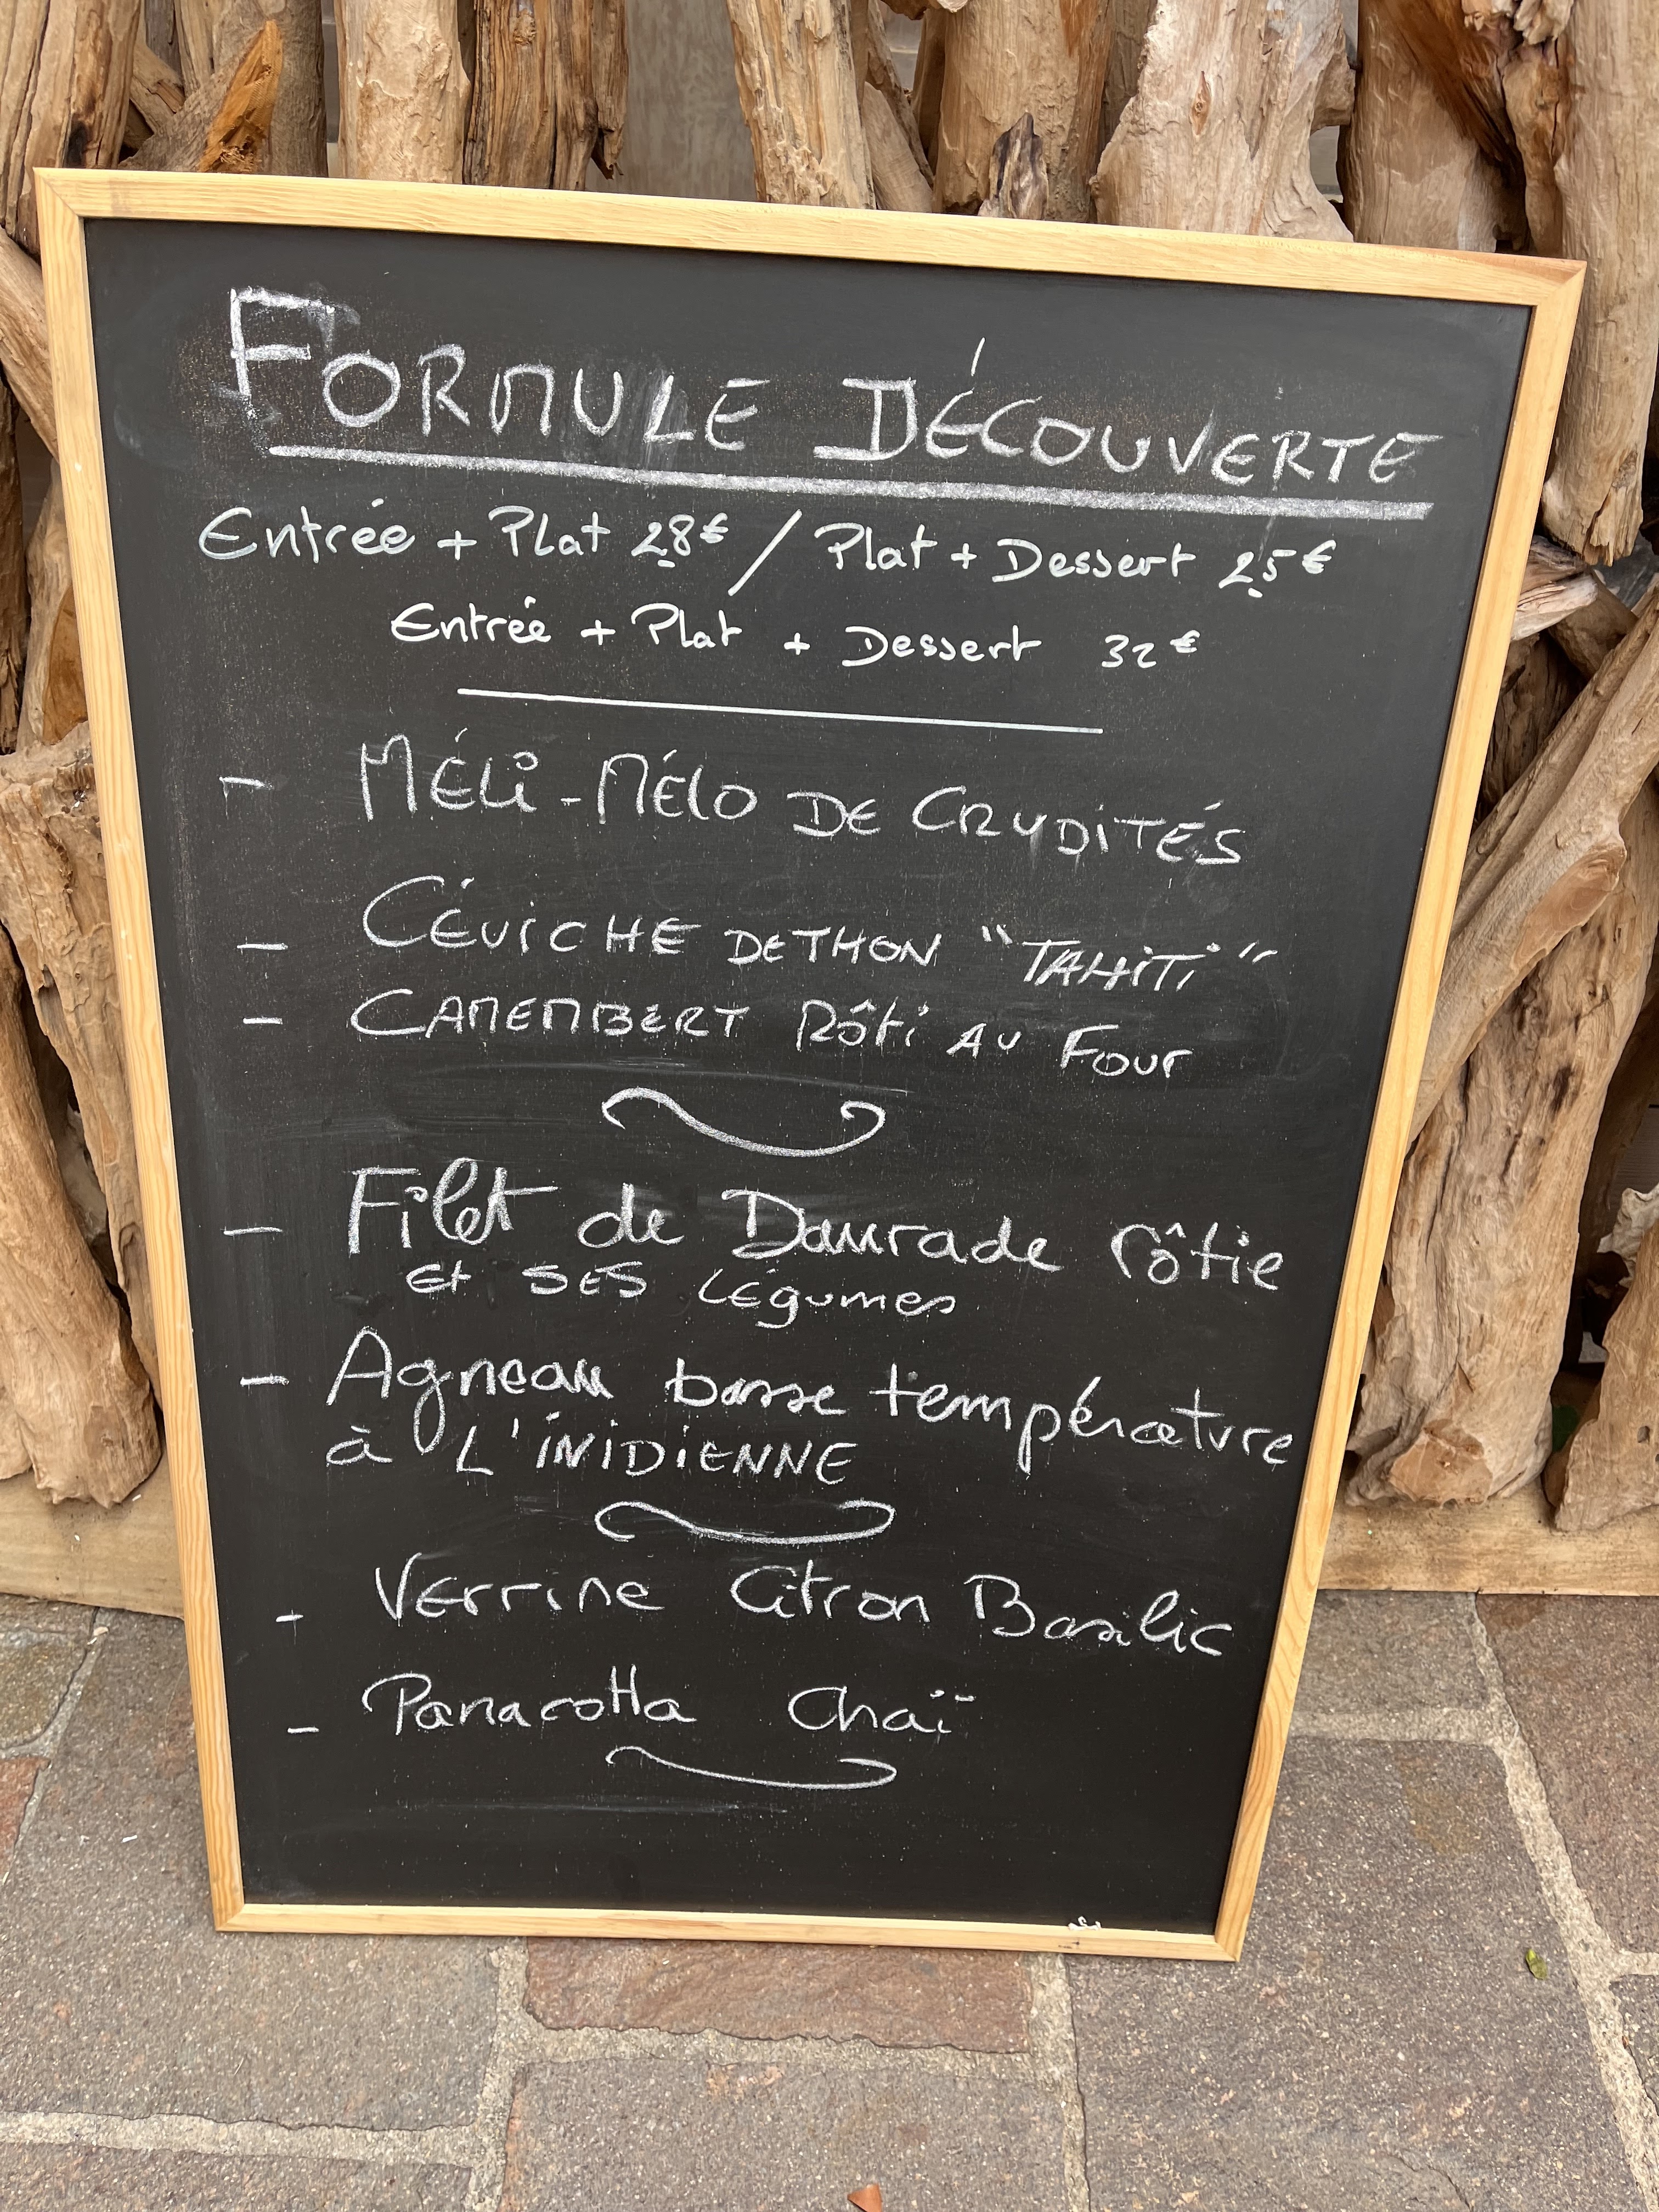 FORMULE DÉCOUVERTE
Entrée + Plat 28€ / Plat + Dessert 25€
Entrée + Plat + Dessert 32€
- MÉLi-MÉLO DE CRUDiTÉS
- CÉViCHE DE THON "TAHiTi"
- CAMEMBERT Rôti AU Four
- Filet de Daurade rôtie
et SES Légumes
- Agneau basse température
à L'INIDIENNE
- Verrine Citron Basilic
- Panacotta Chaï